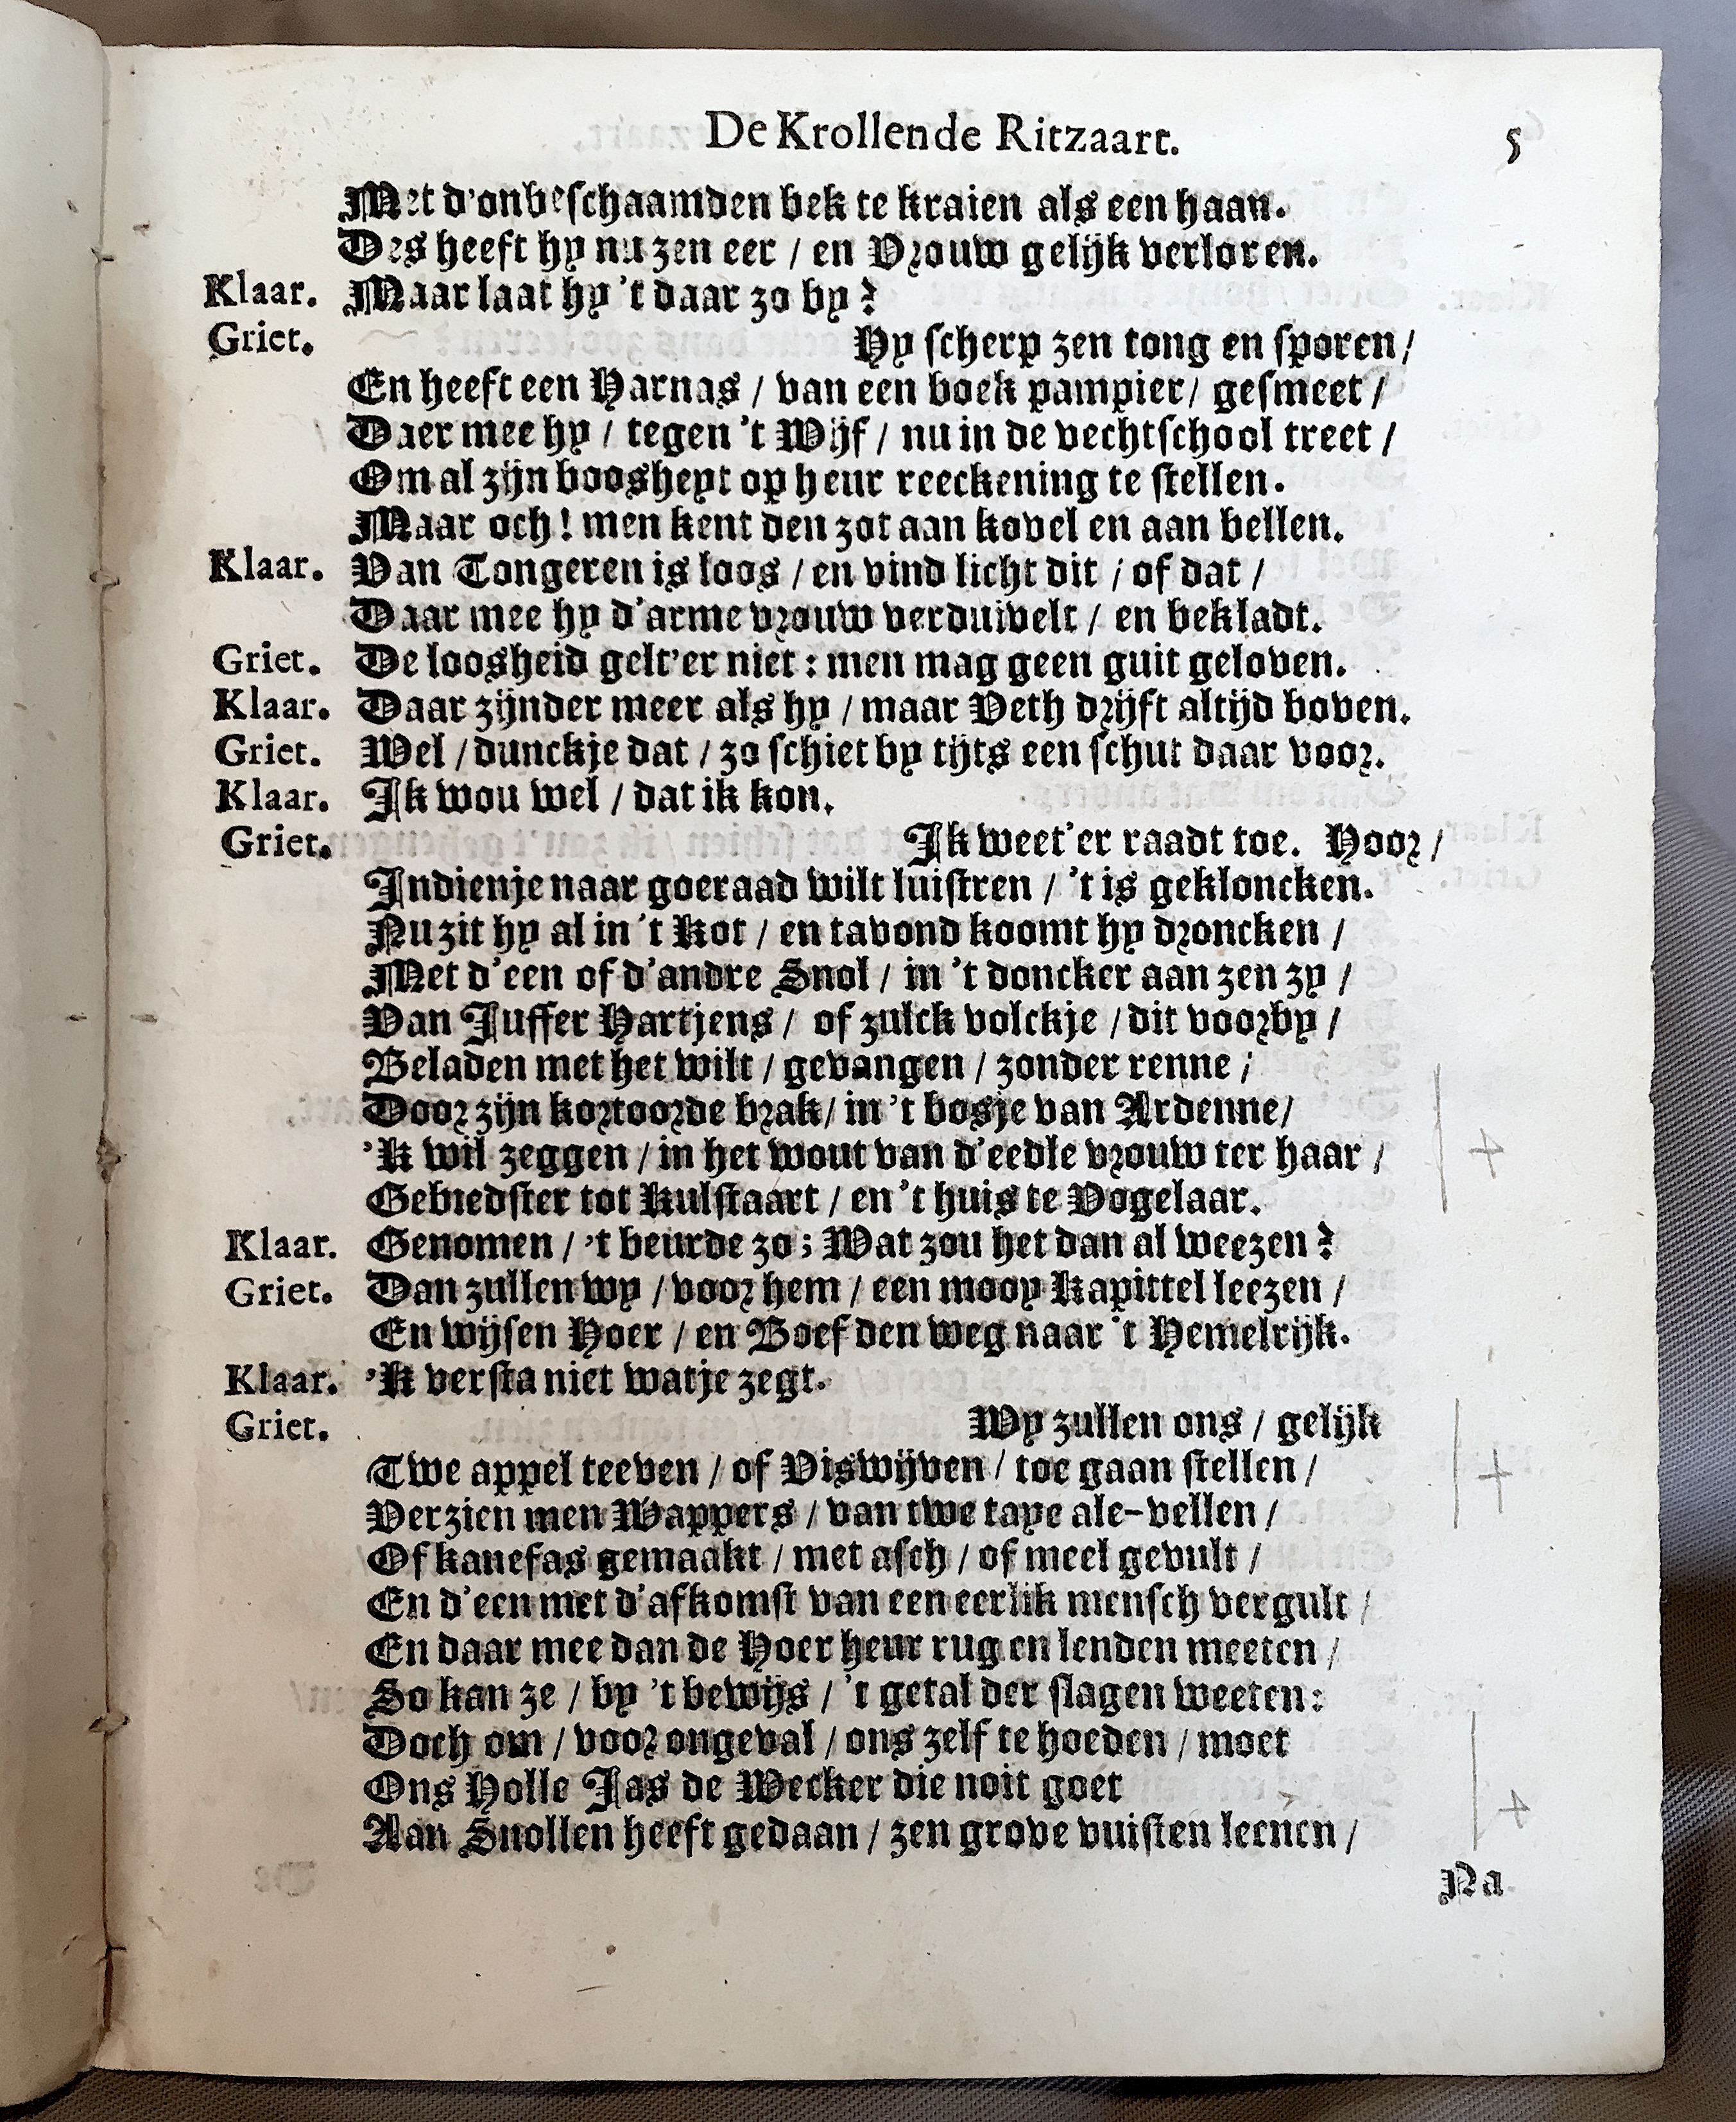 De Krollende Ritzaart. 5
Met d'onbeschaamden bek te kraien als een haan.
Des heeft hy nu zen eer / en Vrouw gelijk verloren.
Klaar. Maar laat hy 't daar zo by?
Griet. Hy scherp zen tong en sporen /
En heeft een Harnas / van een boek pampier / gesmeet /
Daer mee hy / tegen 't Wijf / nu in de vechtschool treet /
Om al zijn boosheyt op heur reeckening te stellen.
Maar och! men kent den zot aan kovel en aan bellen.
Klaar. Van Tongeren is loos / en vind licht dit / of dat /
Daar mee hy d'arme vrouw verduivelt / en bekladt.
Griet. De loosheid gelt'er niet: men mag geen guit geloven.
Klaar. Daar zijnder meer als hy / maar Veth drijft altijd boven.
Griet. Wel / dunckje dat / zo schiet by tijts een schut daar voor.
Klaar. Ik wou wel / dat ik kon.
Griet. Ik weet'er raadt toe. Hoor /
Indienje naar goeraad wilt luistren / 't is gekloncken.
Nu zit hy al in 't Kot / en tavond koomt hy droncken /
Met d'een of d'andre Snol / in 't doncker aan zen zy /
Van Juffer Hartjens / of zulck volckje / dit voorby /
Beladen met het wilt / gevangen / zonder renne;
Door zijn kortoorde brak / in 't bosje van Ardenne /
'K wil zeggen / in het wout van d'eedle vrouw ter haar /
Gebiedster tot Kulstaart / en 't huis te Vogelaar.
Klaar. Genomen / 't beurde zo; Wat zou het dan al weezen?
Griet. Dan zullen wy / voor hem / een mooy Kapittel leezen /
En wijsen Hoer / en Boef den weg naar 't Hemelrijk.
Klaar. 'K versta niet watje zegt.
Griet. Wy zullen ons / gelijk
Twe appel teeven / of Viswijven / toe gaan stellen /
Verzien men Wappers / van twe taye ale-vellen /
Of kanefas gemaakt / met asch / of meel gevult /
En d'een met d'afkomst van een eerlik mensch vergult /
En daar mee dan de Hoer heur rug en lenden meeten /
So kan ze / by 't bewijs / 't getal der slagen weeten:
Doch om / voor ongeval / ons zelf te hoeden / moet
Ons Holle Jas de Wecker die noit goet
Aan Snollen heeft gedaan / zen grove vuisten leenen /
Na